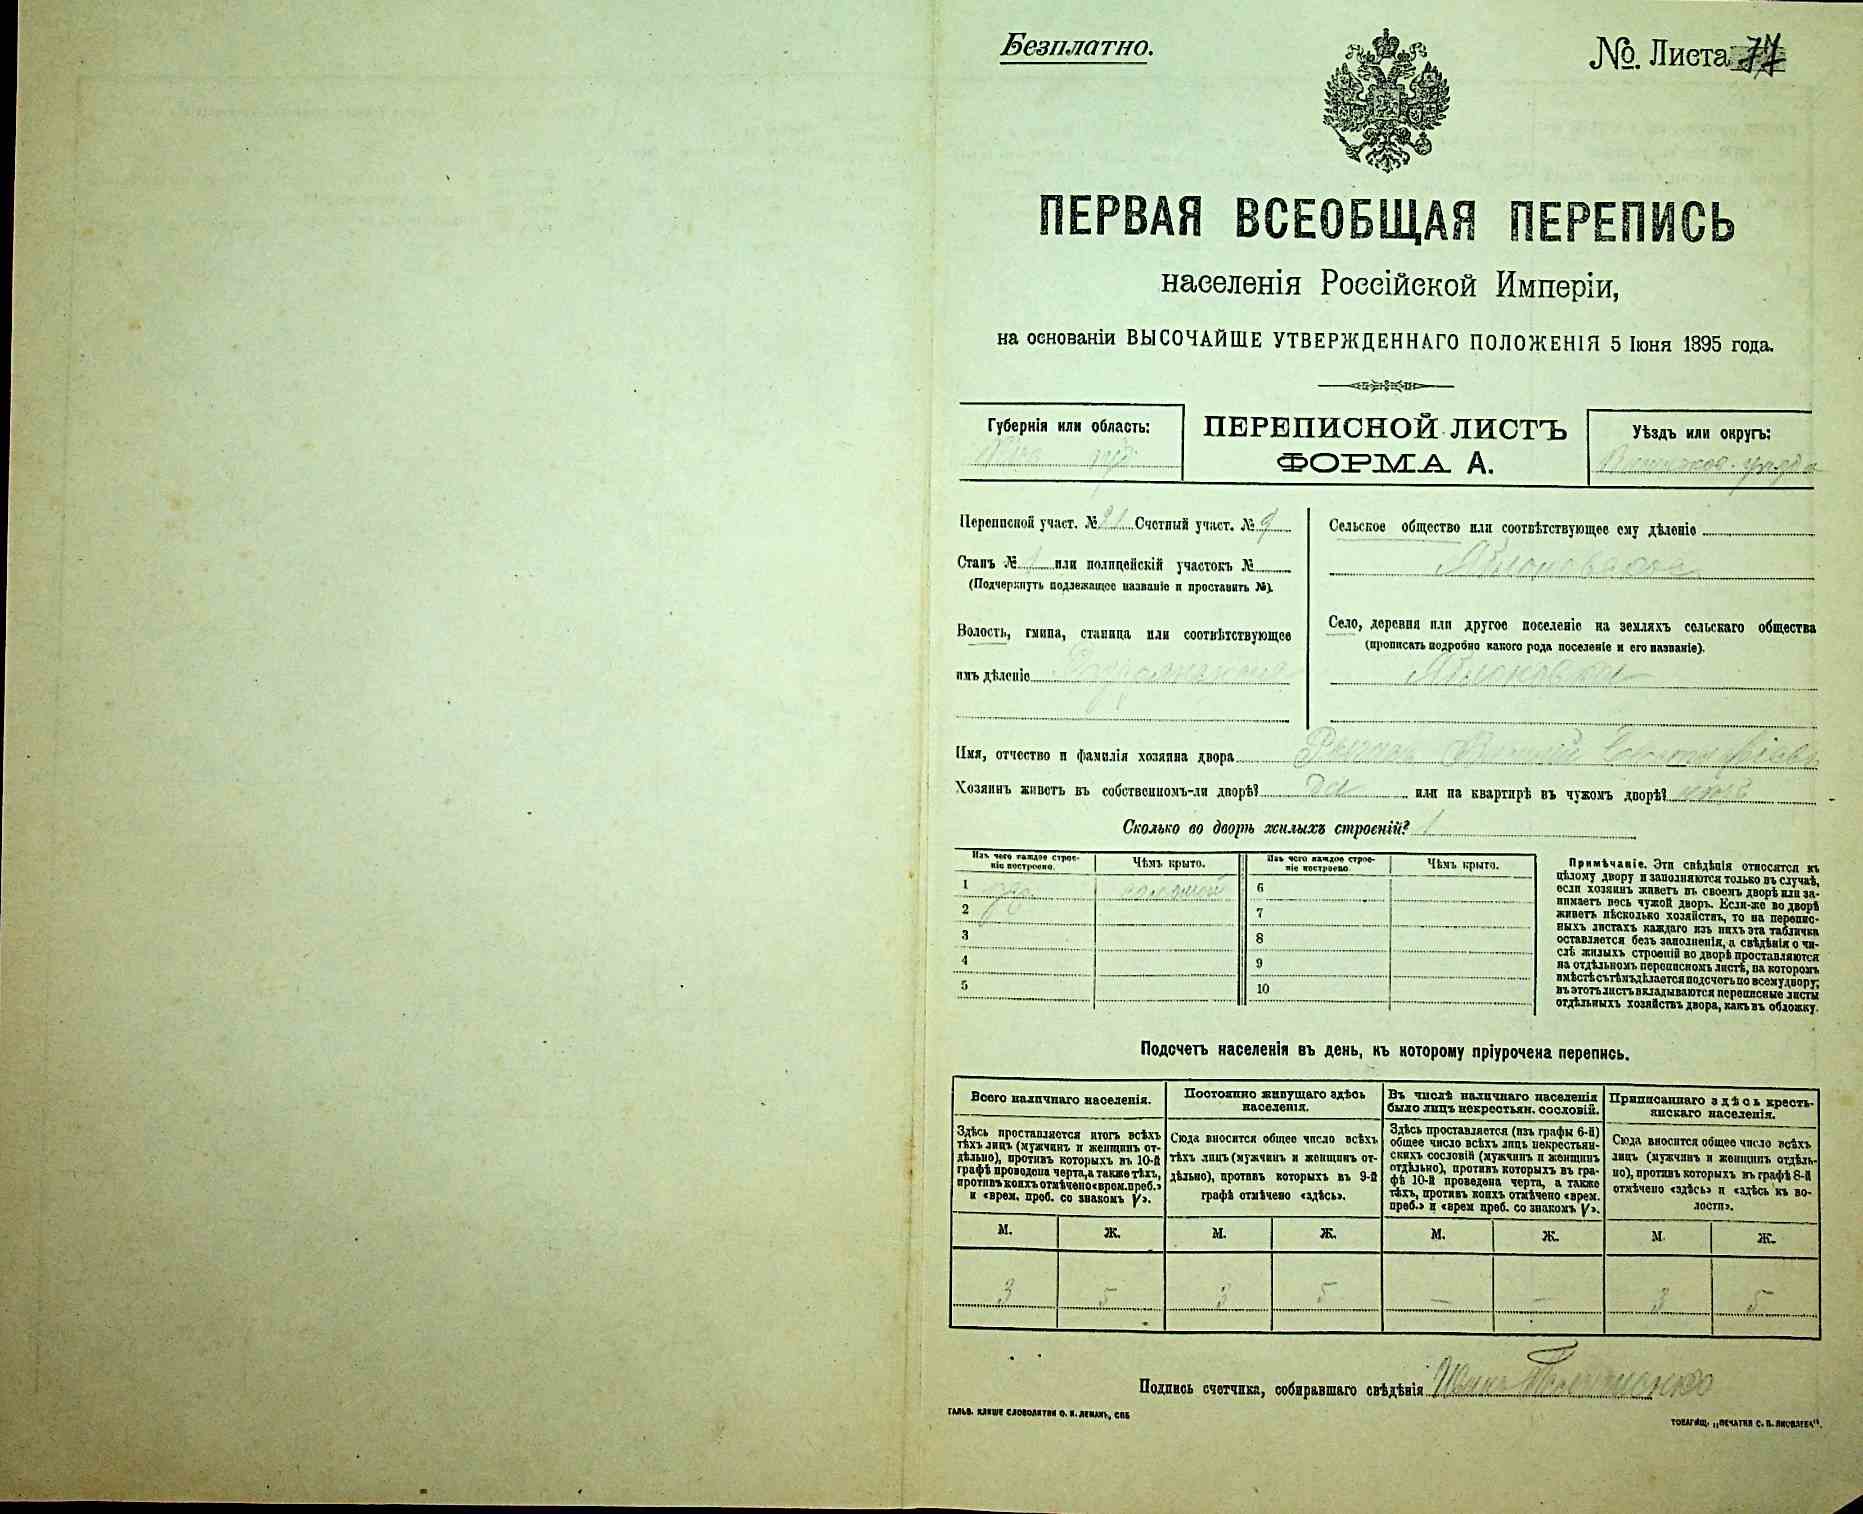 Безплатно.
№. Листа 77
ПЕРВАЯ ВСЕОБЩАЯ ПЕРЕПИСЬ
населенія Россійской Имперіи,
на основаніи ВЫСОЧАЙШЕ УТВЕРЖДЕННАГО ПОЛОЖЕНІЯ 5 Іюня 1895 года.
Губернія или область:
ПЕРЕПИСНОЙ ЛИСТЪ
ФОРМА А.
Уѣздъ или округъ:
Переписной участ. № 21 Счетный участ. № 9
Станъ № или полицейскій участокъ №
(Подчеркнуть подлежащее названіе и проставить №).
Волость, гмина, станица или соотвѣтствующее
имъ дѣленіе
Сельское общество или соотвѣтствующее ему дѣленіе
Село, деревня или другое поселеніе на земляхъ сельскаго общества
(прописать подробно какого рода поселеніе и его названіе).
Имя, отчество и фамилія хозяина двора
Хозяинъ живетъ въ собственномъ-ли дворѣ? да или на квартирѣ въ чужомъ дворѣ?
Сколько во дворѣ жилыхъ строеній? 1
Изъ чего каждое строе-
ніе построено.
Чѣмъ крыто.
Изъ чего каждое строе-
ніе построено
Чѣмъ крыто.
1 6
2 7
3 8
4 9
5 10
Примѣчаніе. Эти свѣдѣнія относятся къ
цѣлому двору и заполняются только въ случаѣ,
если хозяинъ живетъ въ своемъ дворѣ или за-
нимаетъ весь чужой дворъ. Если-же во дворѣ
живетъ нѣсколько хозяйствъ, то на перепис-
ныхъ листахъ каждаго изъ нихъ эта табличка
оставляется безъ заполненія, а свѣдѣнія о чи-
слѣ жилыхъ строеній во дворѣ проставляются
на отдѣльномъ переписномъ листѣ, на которомъ
вмѣстѣ съ тѣмъ дѣлается подсчетъ по всему двору;
въ этотъ листъ вкладываются переписные листы
отдѣльныхъ хозяйствъ двора, какъ въ обложку.
Подсчетъ населенія въ день, къ которому пріурочена перепись.
Всего наличнаго населенія.
Здѣсь проставляется итогъ всѣхъ
тѣхъ лицъ (мужчинъ и женщинъ от-
дѣльно), противъ которыхъ въ 10-й
графѣ проведена черта, а также тѣхъ,
противъ коихъ отмѣчено «врем. преб.»
и «врем. преб. со знакомъ V».
Постоянно живущаго здѣсь
населенія.
Сюда вносится общее число всѣхъ
тѣхъ лицъ (мужчинъ и женщинъ от-
дѣльно), противъ которыхъ въ 9-й
графѣ отмѣчено «здѣсь».
Въ числѣ наличнаго населенія
было лицъ некрестьян. сословій.
Здѣсь проставляется (изъ графы 6-й)
общее число всѣхъ лицъ некрестьян-
скихъ сословій (мужчинъ и женщинъ
отдѣльно), противъ которыхъ въ гра-
фѣ 10-й проведена черта, а также
тѣхъ, противъ коихъ отмѣчено «врем.
преб.» и «врем преб. со знакомъ V».
Приписаннаго здѣсь кресть-
янскаго населенія.
Сюда вносится общее число всѣхъ
лицъ (мужчинъ и женщинъ отдѣль-
но), противъ которыхъ въ графѣ 8-й
отмѣчено «здѣсь» и «здѣсь къ во-
лости».
М. Ж. М. Ж. М. Ж. М. Ж.
3 5 3 5 — — 3 5
Подпись счетчика, собиравшаго свѣдѣнія
ГАЛЬВ. КЛИШЕ СЛОВОЛИТНИ О. И. ЛЕМАНЪ, СПБ
ТОВАРИЩ. „ПЕЧАТНЯ С. П. ЯКОВЛЕВА".